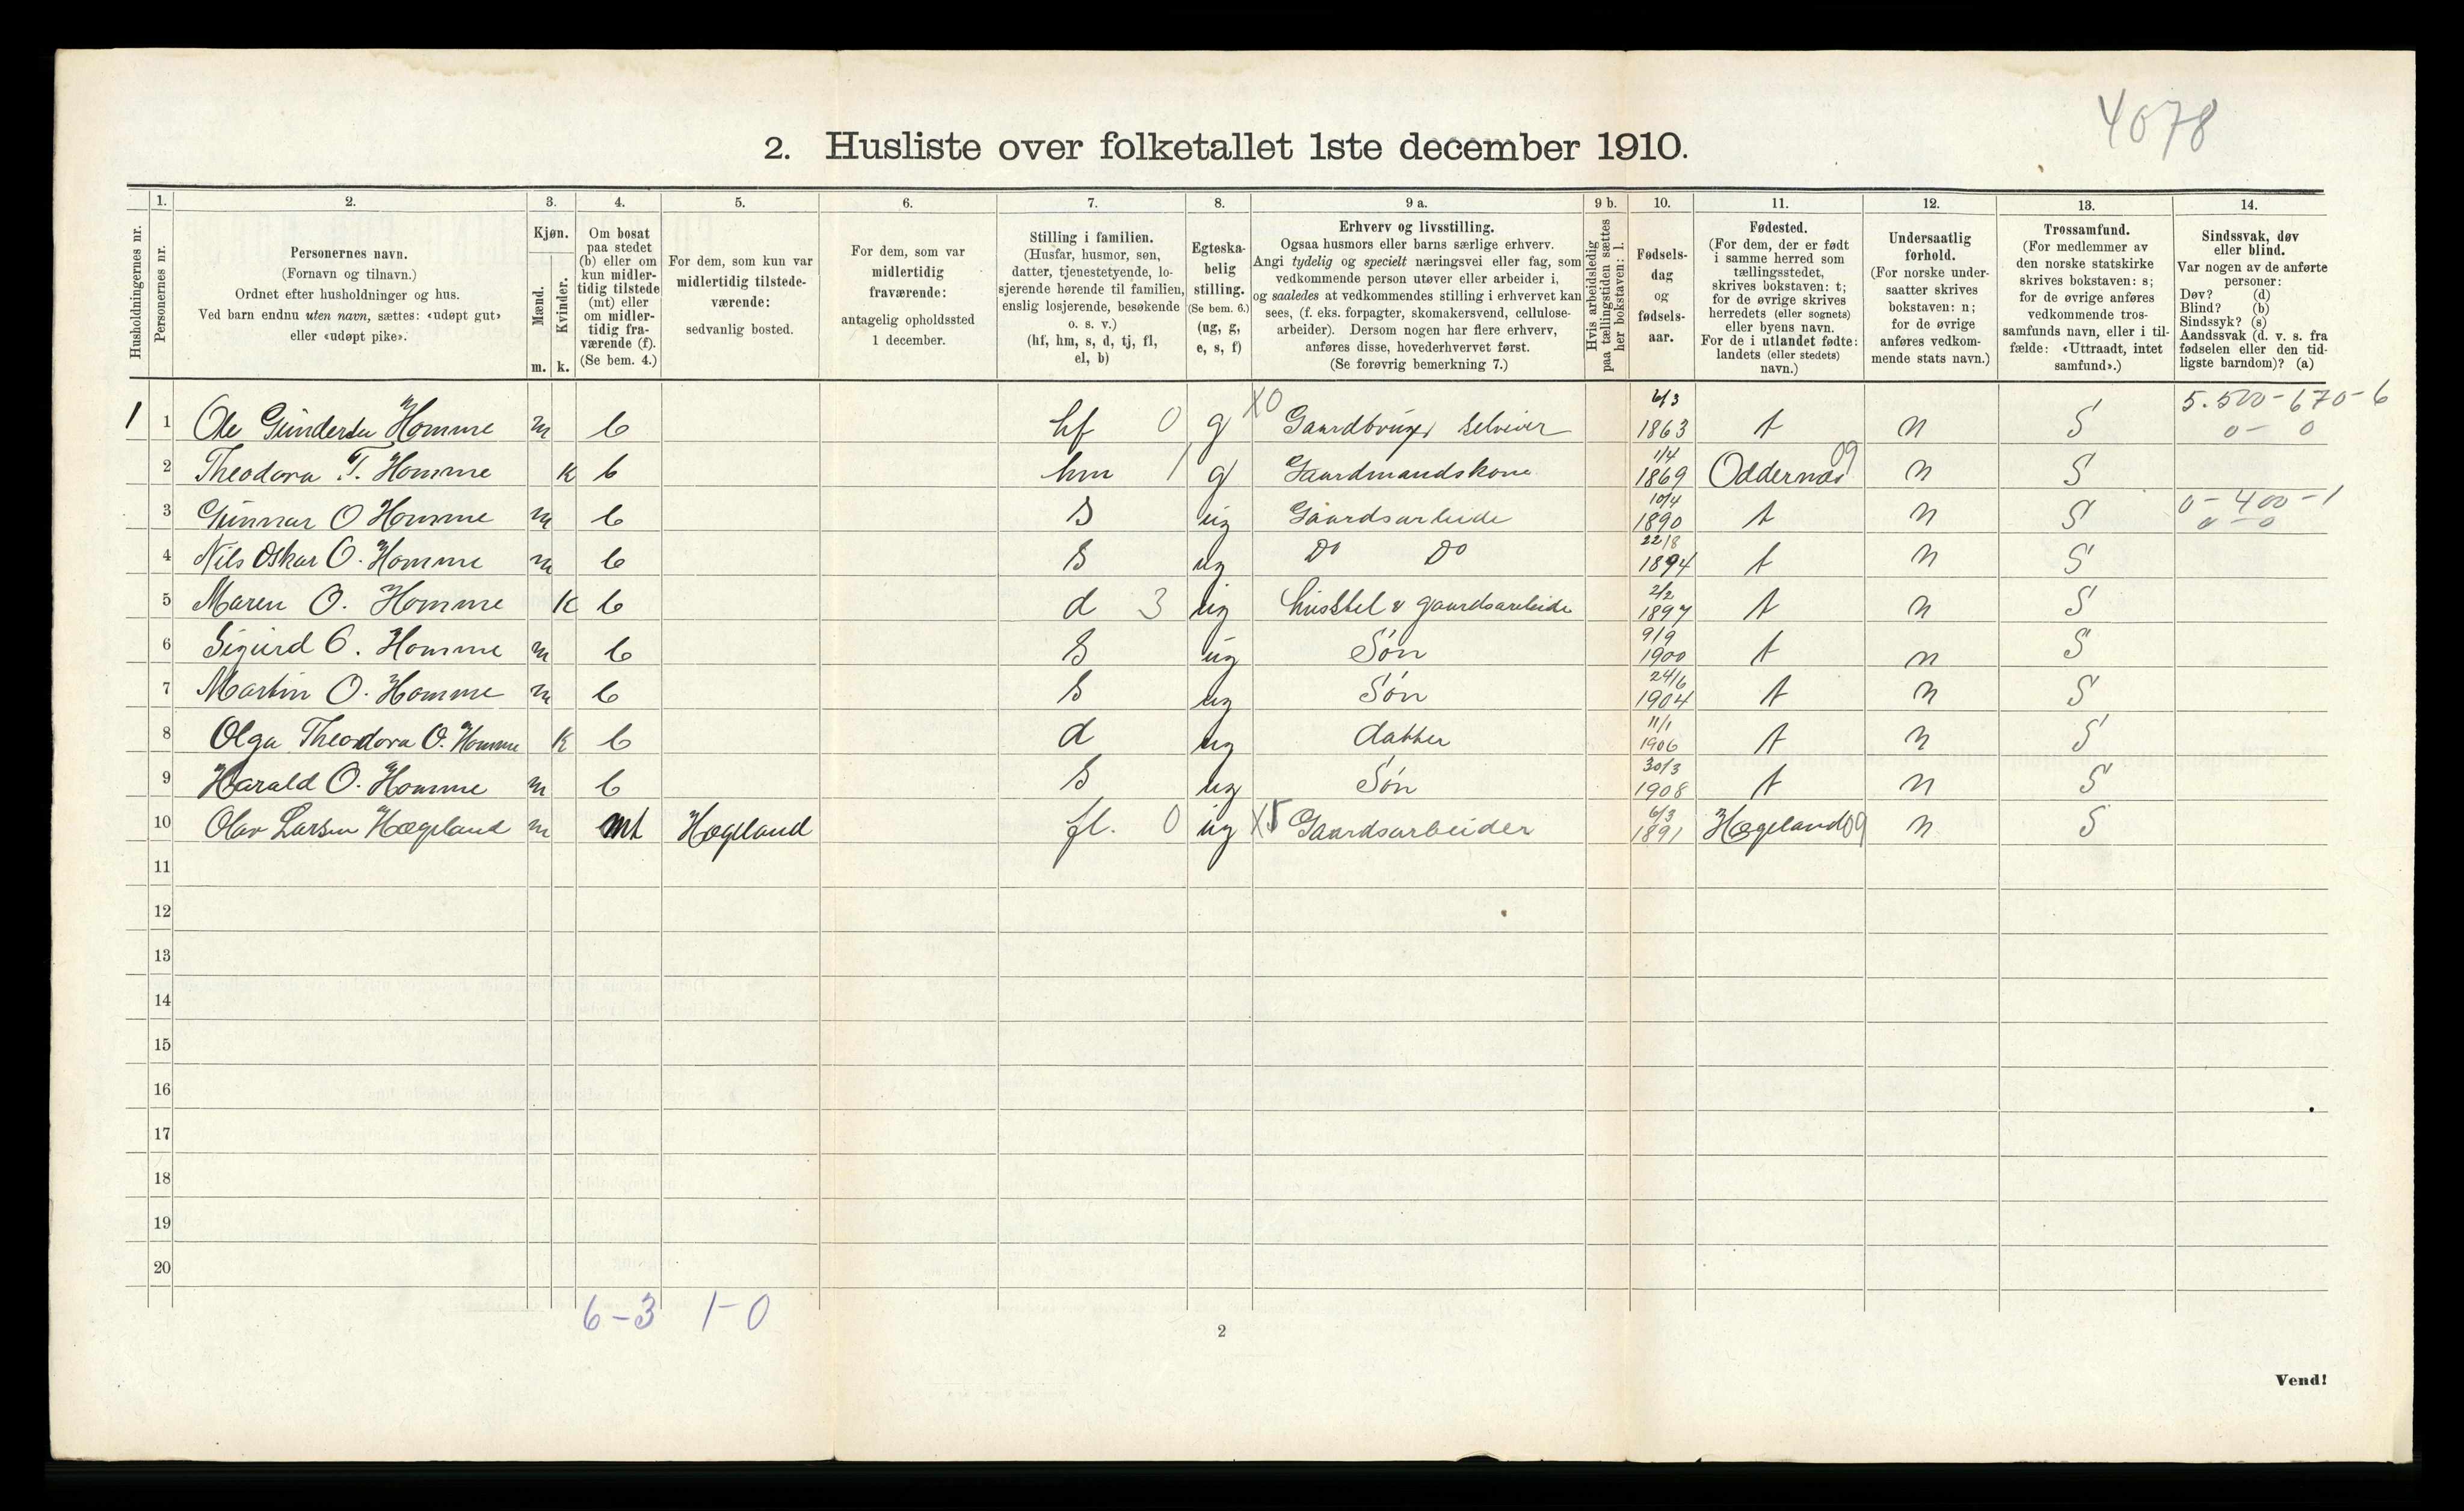 4078
2. Husliste over folketallet 1ste december 1910.
Husholdningernes nr.
1.
Personernes nr.
2.
Personernes navn.
(Fornavn og tilnavn.)
Ordnet efter husholdninger og hus.
Ved barn endnu uten navn, sættes: «udøpt gut»
eller «udøpt pike».
3.
Kjøn.
Mænd.
Kvinder.
m. k.
4.
Om bosat
paa stedet
(b) eller om
kun midler-
tidig tilstede
(mt) eller
om midler-
tidig fra-
værende (f).
(Se bem. 4.)
5.
For dem, som kun var
midlertidig tilstede-
værende:
sedvanlig bosted.
6.
For dem, som var
midlertidig
fraværende:
antagelig opholdssted
1 december.
7.
Stilling i familien.
(Husfar, husmor, søn,
datter, tjenestetyende, lo-
sjerende hørende til familien,
enslig losjerende, besøkende
o. s. v.)
(hf, hm, s, d, tj, fl,
el, b)
8.
Egteska-
belig
stilling.
(Se bem. 6.)
(ug, g,
e, s, f)
9 a.
Erhverv og livsstilling.
Ogsaa husmors eller barns særlige erhverv.
Angi tydelig og specielt næringsvei eller fag, som
vedkommende person utøver eller arbeider i,
og saaledes at vedkommendes stilling i erhvervet kan
sees, (f. eks. forpagter, skomakersvend, cellulose-
arbeider). Dersom nogen har flere erhverv,
anføres disse, hovederhvervet først.
(Se forøvrig bemerkning 7.)
9 b.
Hvis arbeidsledig
paa tællingstiden sættes
her bokstaven: l.
10.
Fødsels-
dag
og
fødsels-
aar.
11.
Fødested.
(For dem, der er født
i samme herred som
tællingsstedet,
skrives bokstaven: t;
for de øvrige skrives
herredets (eller sognets)
eller byens navn.
For de i utlandet fødte:
landets (eller stedets)
navn.)
12.
Undersaatlig
forhold.
(For norske under-
saatter skrives
bokstaven: n;
for de øvrige
anføres vedkom-
mende stats navn.)
13.
Trossamfund.
(For medlemmer av
den norske statskirke
skrives bokstaven: s;
for de øvrige anføres
vedkommende tros-
samfunds navn, eller i til-
fælde: «Uttraadt, intet
samfund».)
14.
Sindssvak, døv
eller blind.
Var nogen av de anførte
personer:
Døv? (d)
Blind? (b)
Sindssyk? (s)
Aandssvak (d. v. s. fra
fødselen eller den tid-
ligste barndom)? (a)
1 1 Ole Gundersen Homme m b hf 0 g X0 Gaardbruger selveier 6/3 1863 t n S 5.500-670-6 0-0
2 Theodora T. Homme k b hm 1 g Gaardmandskone 1/4 1869 Oddernæs 09 n S
3 Gunnar O Homme m b s ug Gaardsarbeide 10/4 1890 t n S 0-400-1 0-0
4 Nils Oskar O. Homme m b s ug Do Do 22/8 1894 t n S
5 Maren O. Homme k b d 3 ug husstel & gaardsarbeide 2/2 1897 t n S
6 Sigurd O. Homme m b s ug Søn 9/9 1900 t n S
7 Martin O. Homme m b s ug Søn 24/6 1904 t n S
8 Olga Theodora O. Homme k b d ug datter 11/1 1906 t n S
9 Harald O. Homme m b s ug Søn 30/3 1908 t n S
10 Olav Larsen Hægeland m mt Hægeland fl. 0 ug X5 Gaardsarbeider 6/3 1891 Hægeland 09 n S
11
12
13
14
15
16
17
18
19
20
6-3 1-0
2
Vend!